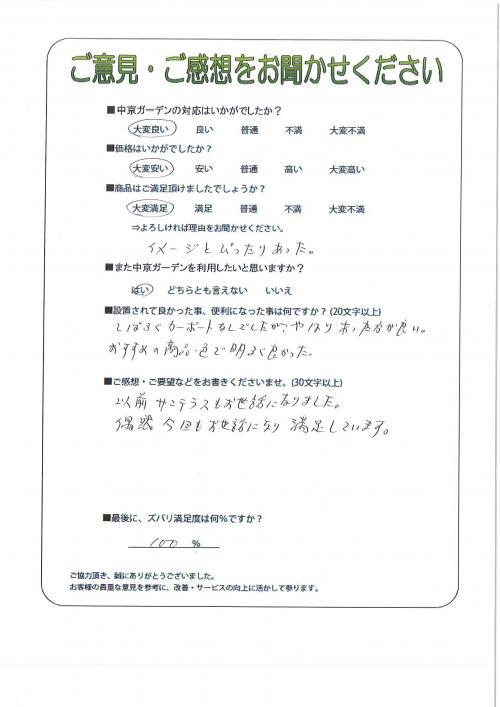 ご意見・ご感想をお聞かせください
■中京ガーデンの対応はいかがでしたか？
大変良い 良い 普通 不満 大変不満
■価格はいかがでしたか？
大変安い 安い 普通 高い 大変高い
■商品はご満足頂けましたでしょうか？
大変満足 満足 普通 不満 大変不満
⇒よろしければ理由をお聞かせください。
イメージとぴったりあった。
■また中京ガーデンを利用したいと思いますか？
はい どちらとも言えない いいえ
■設置されて良かった事、便利になった事は何ですか？(20文字以上)
しばらくカーポートなしでしたが、やはりあった方が良い。
おすすめの商品、色で明るく良かった。
■ご感想・ご要望などをお書きくださいませ。(30文字以上)
以前サンテラスもお世話になりました。
偶然今回もお世話になり満足しています。
■最後に、ズバリ満足度は何%ですか？
100 %
ご協力頂き、誠にありがとうございました。
お客様の貴重な意見を参考に、改善・サービスの向上に活かして参ります。